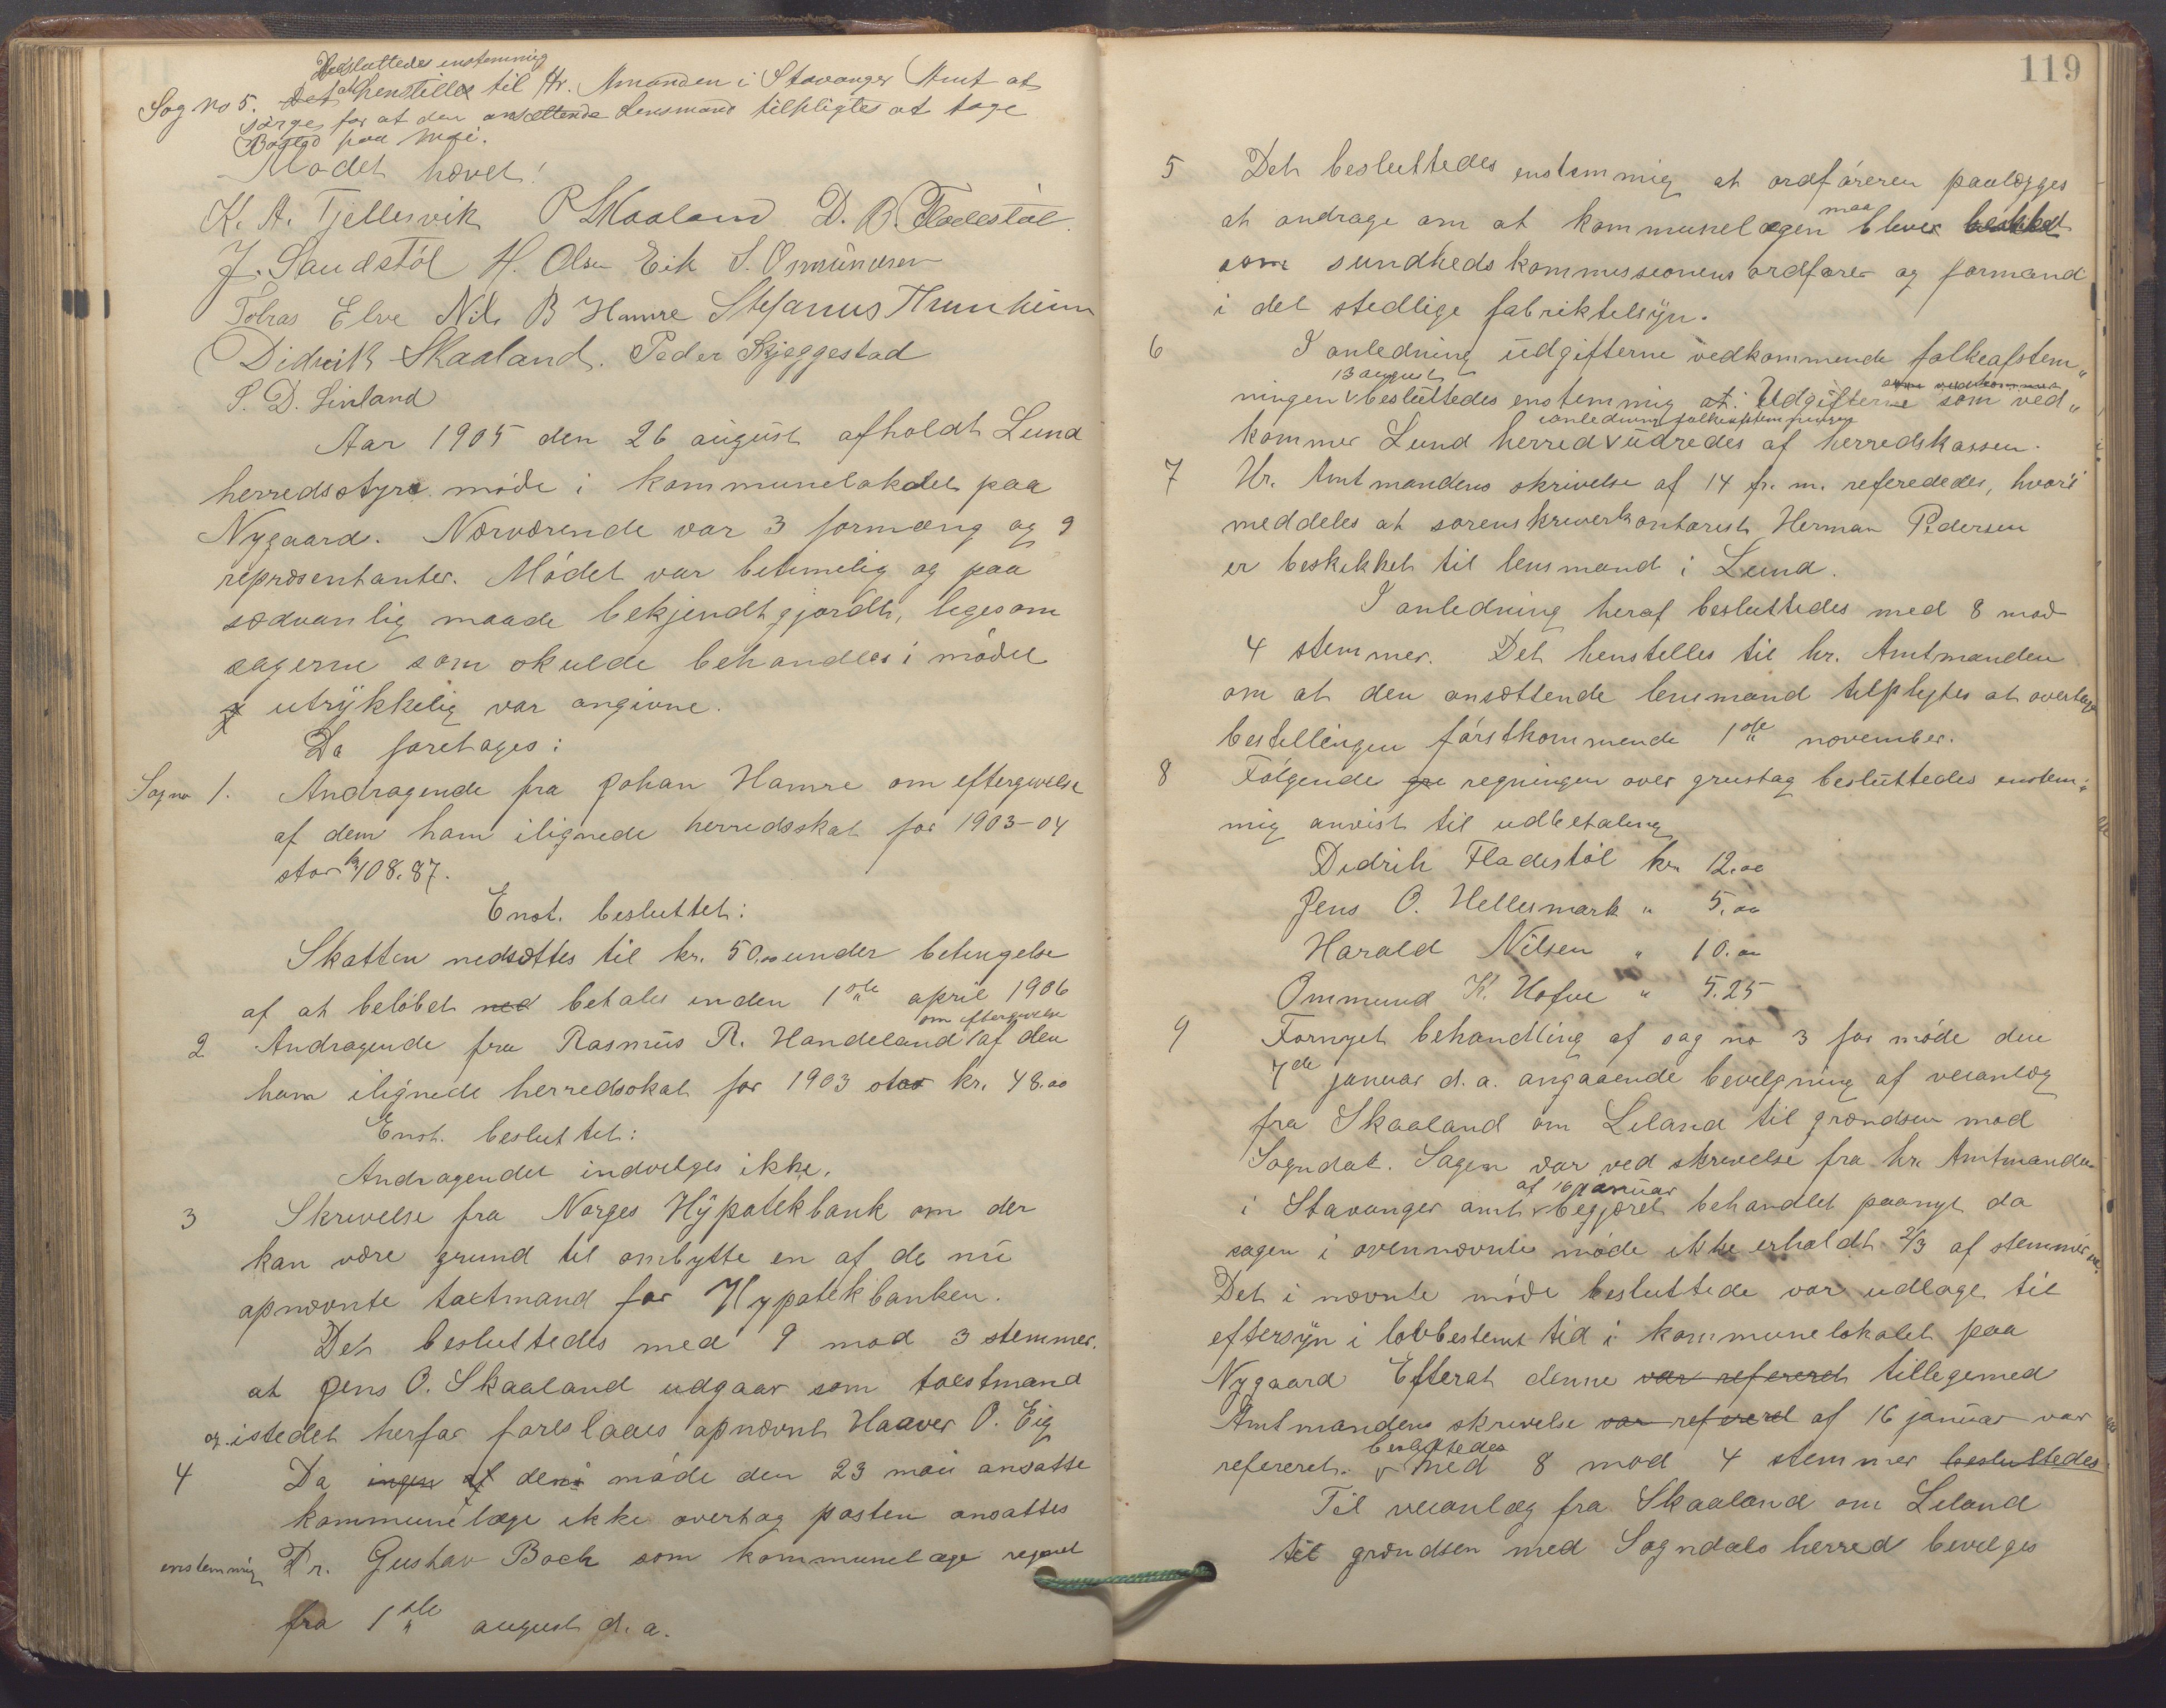 Besluttedes enstemmig
Sag no 5. Det at henstilles til Hr. Amtmanden i Stavanger Amt at
sørge for at den ansættende Lensmand tilpligtes at tage
Bosted paa Moi.
Mødet hævet!
K. A. Tjellesvik P Skaaland D. B. Fladestøl.
J. Sandstøl H. Olsen Eik S. Osmundsen
Tobias Elve Nils B Hamre Stefanus Trunheim
Didrik Skaaland. Peder Skjeggestad
S. D. Linland
Aar 1905 den 26 august afholdt Lund
herredsstyre møde i kommunelokalet paa
Nygaard. Nærværende var 3 formæng og 9
repræsentanter. Mødet var betimelig og paa
sædvanlig maade bekjendtgjordt, ligesom
sagerne som skulde behandles i mødet
utrykkelig var angivne.
Da foretages:
Sag no 1. Andragende fra Johan Hamre om eftergivelse
af dem ham ilignede herredsskat for 1903-04
stor kr 108.87.
Enst. besluttet:
Skatten nedsættes til kr. 50.00 under betingelse
af at beløbet ned betales inden 1ste april 1906
om eftergivelse
2 Andragende fra Rasmus R. Handeland af den
ham ilignede herredsskat for 1903 stor kr. 48.00
Enst. besluttet:
Andragendet indvilges ikke.
3 Skrivelse fra Norges Hypotekbank om der
kan være grund til ombytte en af de nu
opnævnte taxtmand for Hypotekbanken.
Det besluttedes med 9 mod 3 stemmer.
at Jens O. Skaaland udgaar som takstmand
og istedet herfor foreslaaes opnævnt Haaver O. Eig
4 Da ingen af den i møde den 23 mai ansatte
kommunelæge ikke overtog posten ansattes
enstemmig Dr. Gustav Bock som kommunelæge regnet
fra 1ste august d. a.
119
5 Det besluttedes enstemmig at ordføreren paalægges
at andrage om at kommunelægen maa bliver beskikket
som sundhedskommissionens ordfører og formand
i det stedlige fabriktilsyn.
6 I anledning udgifterne vedkommende folkeafstem"
13 august
ningen besluttedes enstemmig at: Udgifterne som ved"
ianledning folkeafstemningen
kommer Lund herred udredes af herredskassen.
7 Hr. Amtmandens skrivelse af 14 fr. m. refereredes, hvori
meddeles at sorenskriverkontorist Herman Pedersen
er beskikket til lensmand i Lund.
I anledning heraf besluttedes med 8 mod
4 stemmer. Det henstilles til hr. Amtmanden
om at den ansættende lensmand tilpligtes at overtage
bestillingen førstkommende 1ste november.
8 Følgende gre regninger over grustag besluttedes enstem"
mig anvist til udbetaling
Didrik Fladestøl kr. 12.00
Jens O. Hellesmark " 5.00
Harald Nilsen " 10.00
Ommund K. Hofve " 5.25
9 Fornyet behandling af sag no 3 for møde den
7de januar d. a. angaaende bevilgning af veianlæg
fra Skaaland om Liland til grændsen mod
Sogndal. Sagen var ved skrivelse fra hr. Amtmanden
af 16 januar
i Stavanger amt begjæret behandlet paanyt da
sagen i ovennævnte møde ikke erholdt 2/3 af stemmerne.
Det i nævnte møde besluttede var udlagt til
eftersyn i lovbestemt tid i kommunelokalet paa
Nygaard Efterat denne var refereret tillegemed
Amtmandens skrivelse var refereret af 16 januar var
besluttedes
refereret. med 8 mod 4 stemmer besluttedes
Til veianlæg fra Skaaland om Liland
til grændsen med Sogndals herred bevilges